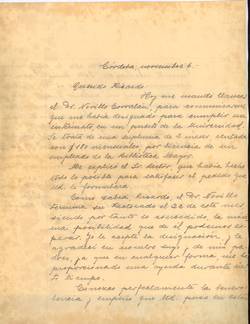 Córdoba, noviembre 6.
Querido Ricardo:
Hoy me mandó llamar
el Dr. Novillo Corvalán, para comunicarme
que me había designado para cumplir un
interinato en un puesto de la Universidad.
Se trata de una suplencia de 2 meses rentada
con $150 mensuales, por licencia de un
empleado de la Biblioteca Mayor.
Me repitió el Sr. Rector que había hecho
todo lo posible para satisfacer el pedido que
Ud. le formulara.
Como sabrá Ricardo, el Dr. Novillo
termina su Rectorado el 22 de este mes,
siendo por tanto lo sucedido, la única
posibilidad que de él podíamos es-
perar. Yo le acepté la designación, y
agradecí en nombre suyo, y de mis pa-
dres, ya que en cualquier forma, me ha
proporcionado una ayuda durante
tiempo.
Conozco perfectamente la benevo-
lencia y empeño que Ud. puso en esta